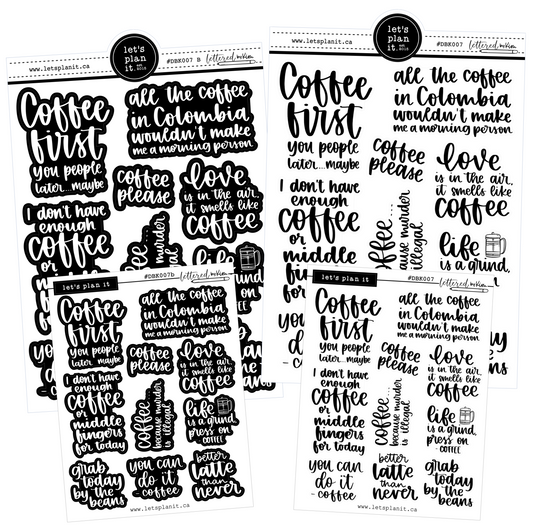 let's
plan
it.
www.letsplanit.ca
#DBK007 B
Coffee
first
you people
later...maybe
all the coffee
in Colombia
wouldn't make
me a morning person
coffee
please
love
is in the air.
it smells like
coffee
I don't have
enough
coffee
or
middle
coffee...
because murder
is illegal
let's
plan
it.
www.letsplanit.ca
#DBK007
Coffee
first
you people
later...maybe
all the coffee
in Colombia
wouldn't make
me a morning person
coffee
please
love
is in the air.
it smells like
coffee
I don't have
enough
coffee
or
middle
life
is a grind.
let's plan it
#DBK007b
Coffee
first
you people
later...maybe
all the coffee
in Colombia
wouldn't make
me a morning person
coffee
please
love
is in the air.
it smells like
coffee
I don't have
enough
coffee
or
middle
fingers
for today
coffee...
because murder
is illegal
life
is a grind.
press on
- COFFEE
grab
today
by the
beans
you can
do it
- coffee
better
latte
than
never
www.letsplanit.ca
let's plan it
#DBK007
Coffee
first
you people
later...maybe
all the coffee
in Colombia
wouldn't make
me a morning person
coffee
please
love
is in the air.
it smells like
coffee
I don't have
enough
coffee
or
middle
fingers
for today
coffee...
because murder
is illegal
life
is a grind.
press on
- COFFEE
you can
do it
- coffee
better
latte
than
never
grab
today
by the
beans
www.letsplanit.ca